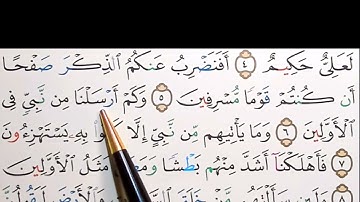 لَعَلِيٌّ حَكِيمٌ ٤ أَفَنَضْرِبُ عَنكُمُ ٱلذِّكْرَ صَفْحًا
أَن كُنتُمْ قَوْمًا مُّسْرِفِينَ ٥ وَكَمْ أَرْسَلْنَا مِن نَّبِيٍّ فِي
ٱلْأَوَّلِينَ ٦ وَمَا يَأْتِيهِم مِّن نَّبِيٍّ إِلَّا بِهِۦ يَسْتَهْزِءُونَ
٧ فَأَهْلَكْنَا أَشَدَّ مِنْهُم بَطْشًا مَثَلُ ٱلْأَوَّلِينَ
٨ وَلَئِن سَأَلْتَهُم مَّنْ خَلَقَ وَٱلْأَرْضَ لَيَقُولُنَّ